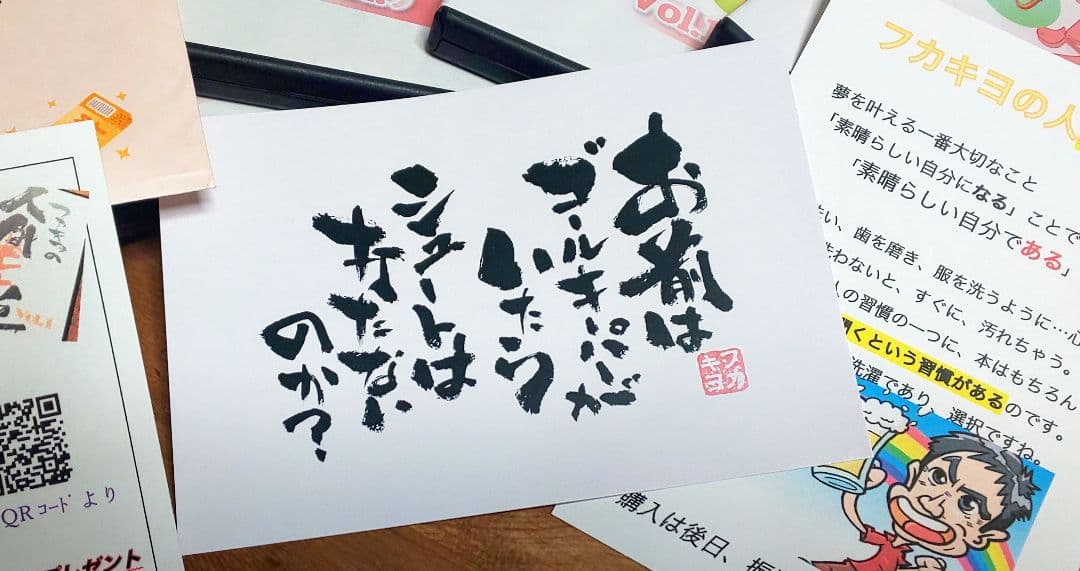 お前は
ゴールキーパーが
いたら
シュートは
打たない
のか?
フカ
キヨ
Vol.1
フカキヨの人
夢を叶える一番大切なこと
「素晴らしい自分になる」ことで
「素晴らしい自分である」
い、歯を磨き、服を洗うように…心
洗わないと、すぐに、汚れちゃう。
人の習慣の一つに、本はもちろん
くという習慣があるのです。
洗濯であり、選択ですね。
購入は後日、振
Vol.1
QRコードより
プレゼント